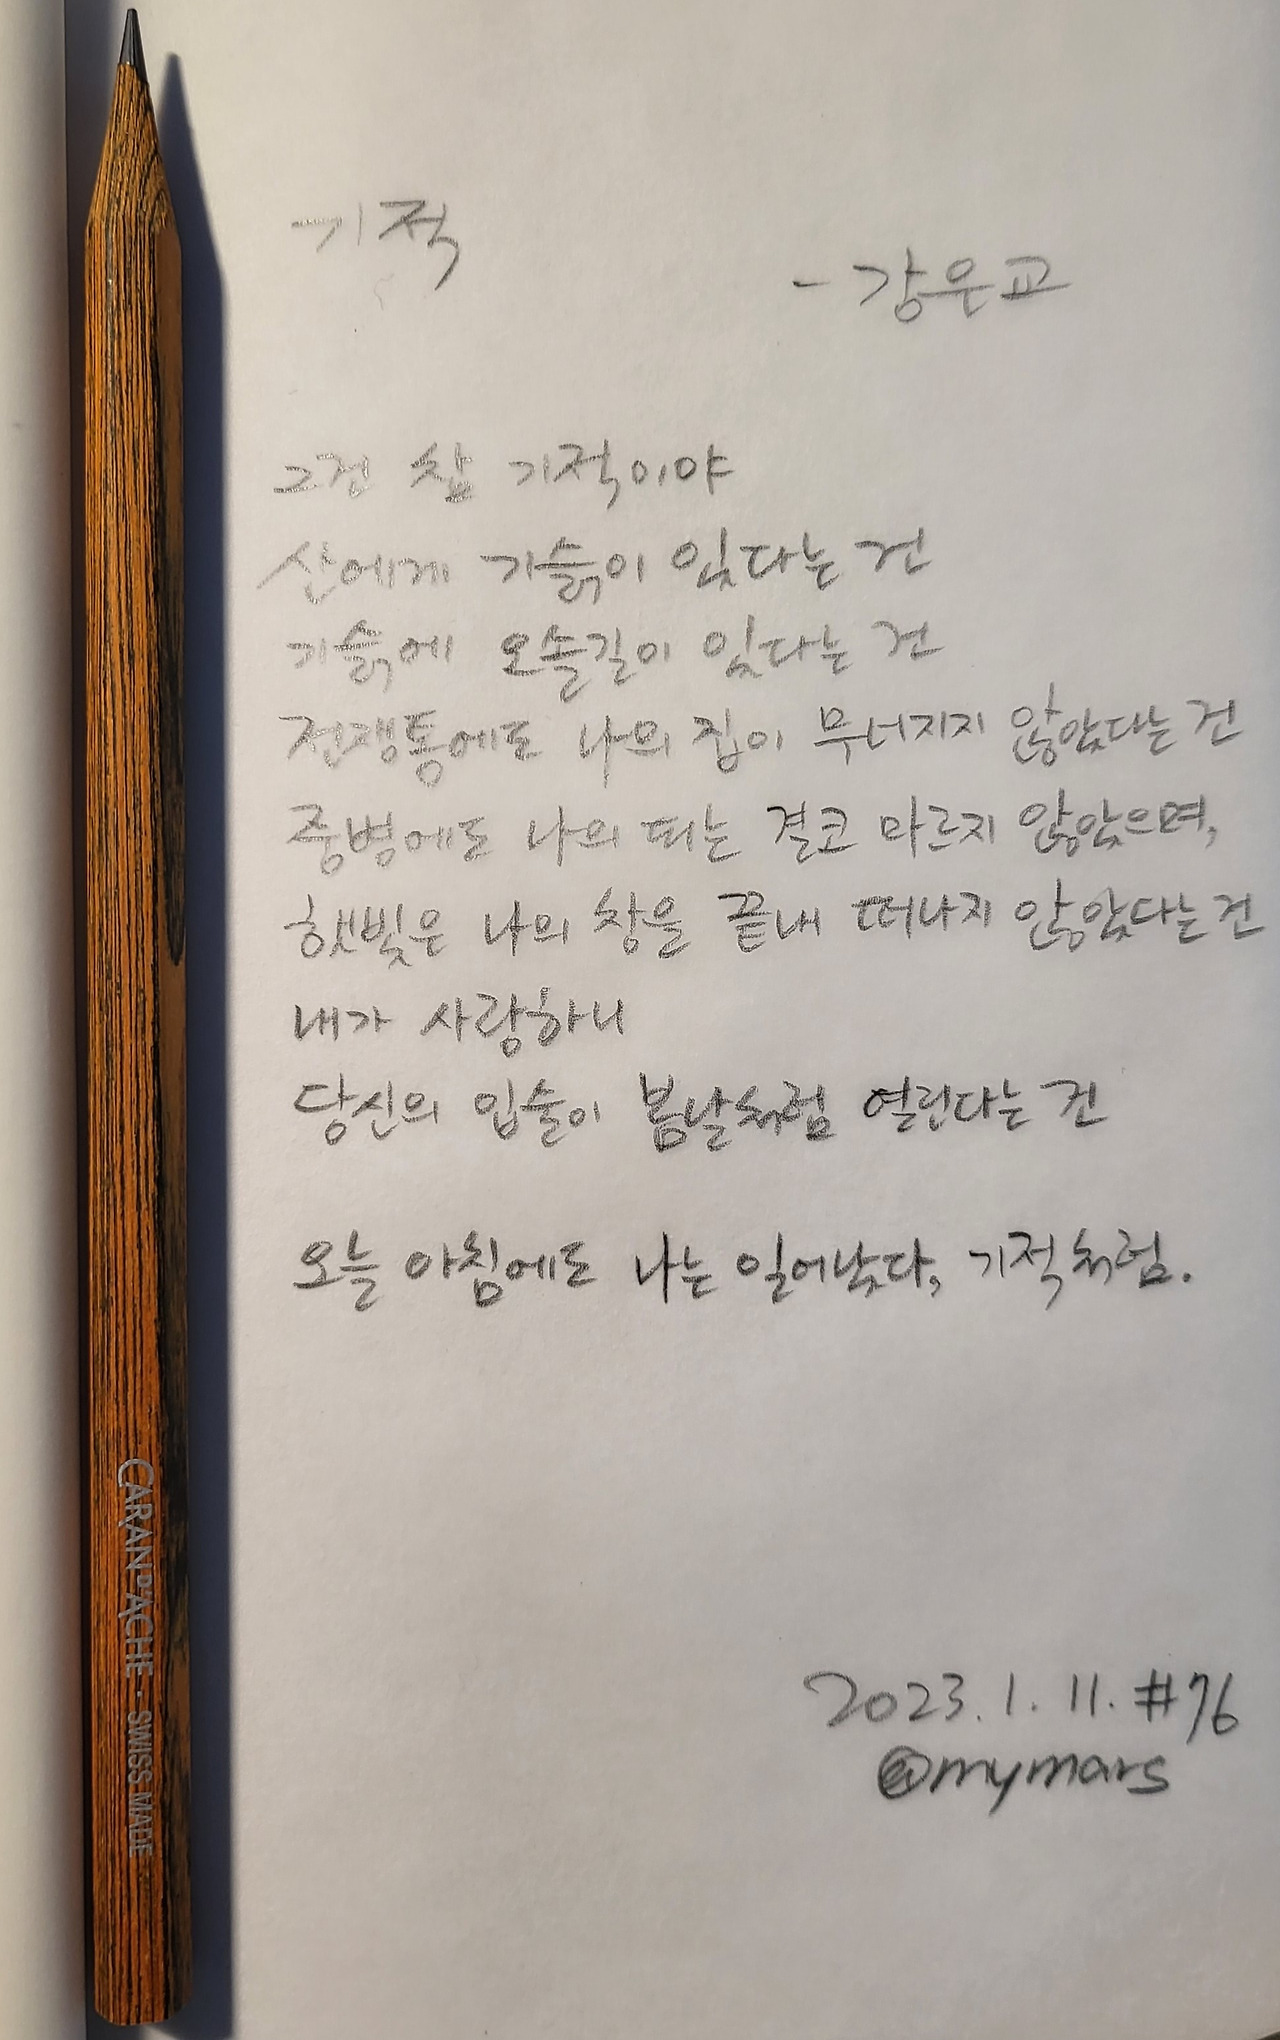 기적
- 강은교
그건 참 기적이야
산에게 기슭이 있다는 건
기슭에 오솔길이 있다는 건
전쟁통에도 나의 집이 무너지지 않았다는 건
중병에도 나의 피는 결코 마르지 않았으며,
햇빛은 나의 창을 끝내 떠나지 않았다는 건
내가 사랑하니
당신의 입술이 봄날처럼 열린다는 건
오늘 아침에도 나는 일어났다, 기적처럼.
CARAN D'ACHE · SWISS MADE
2023. 1. 11. #76
@mymars